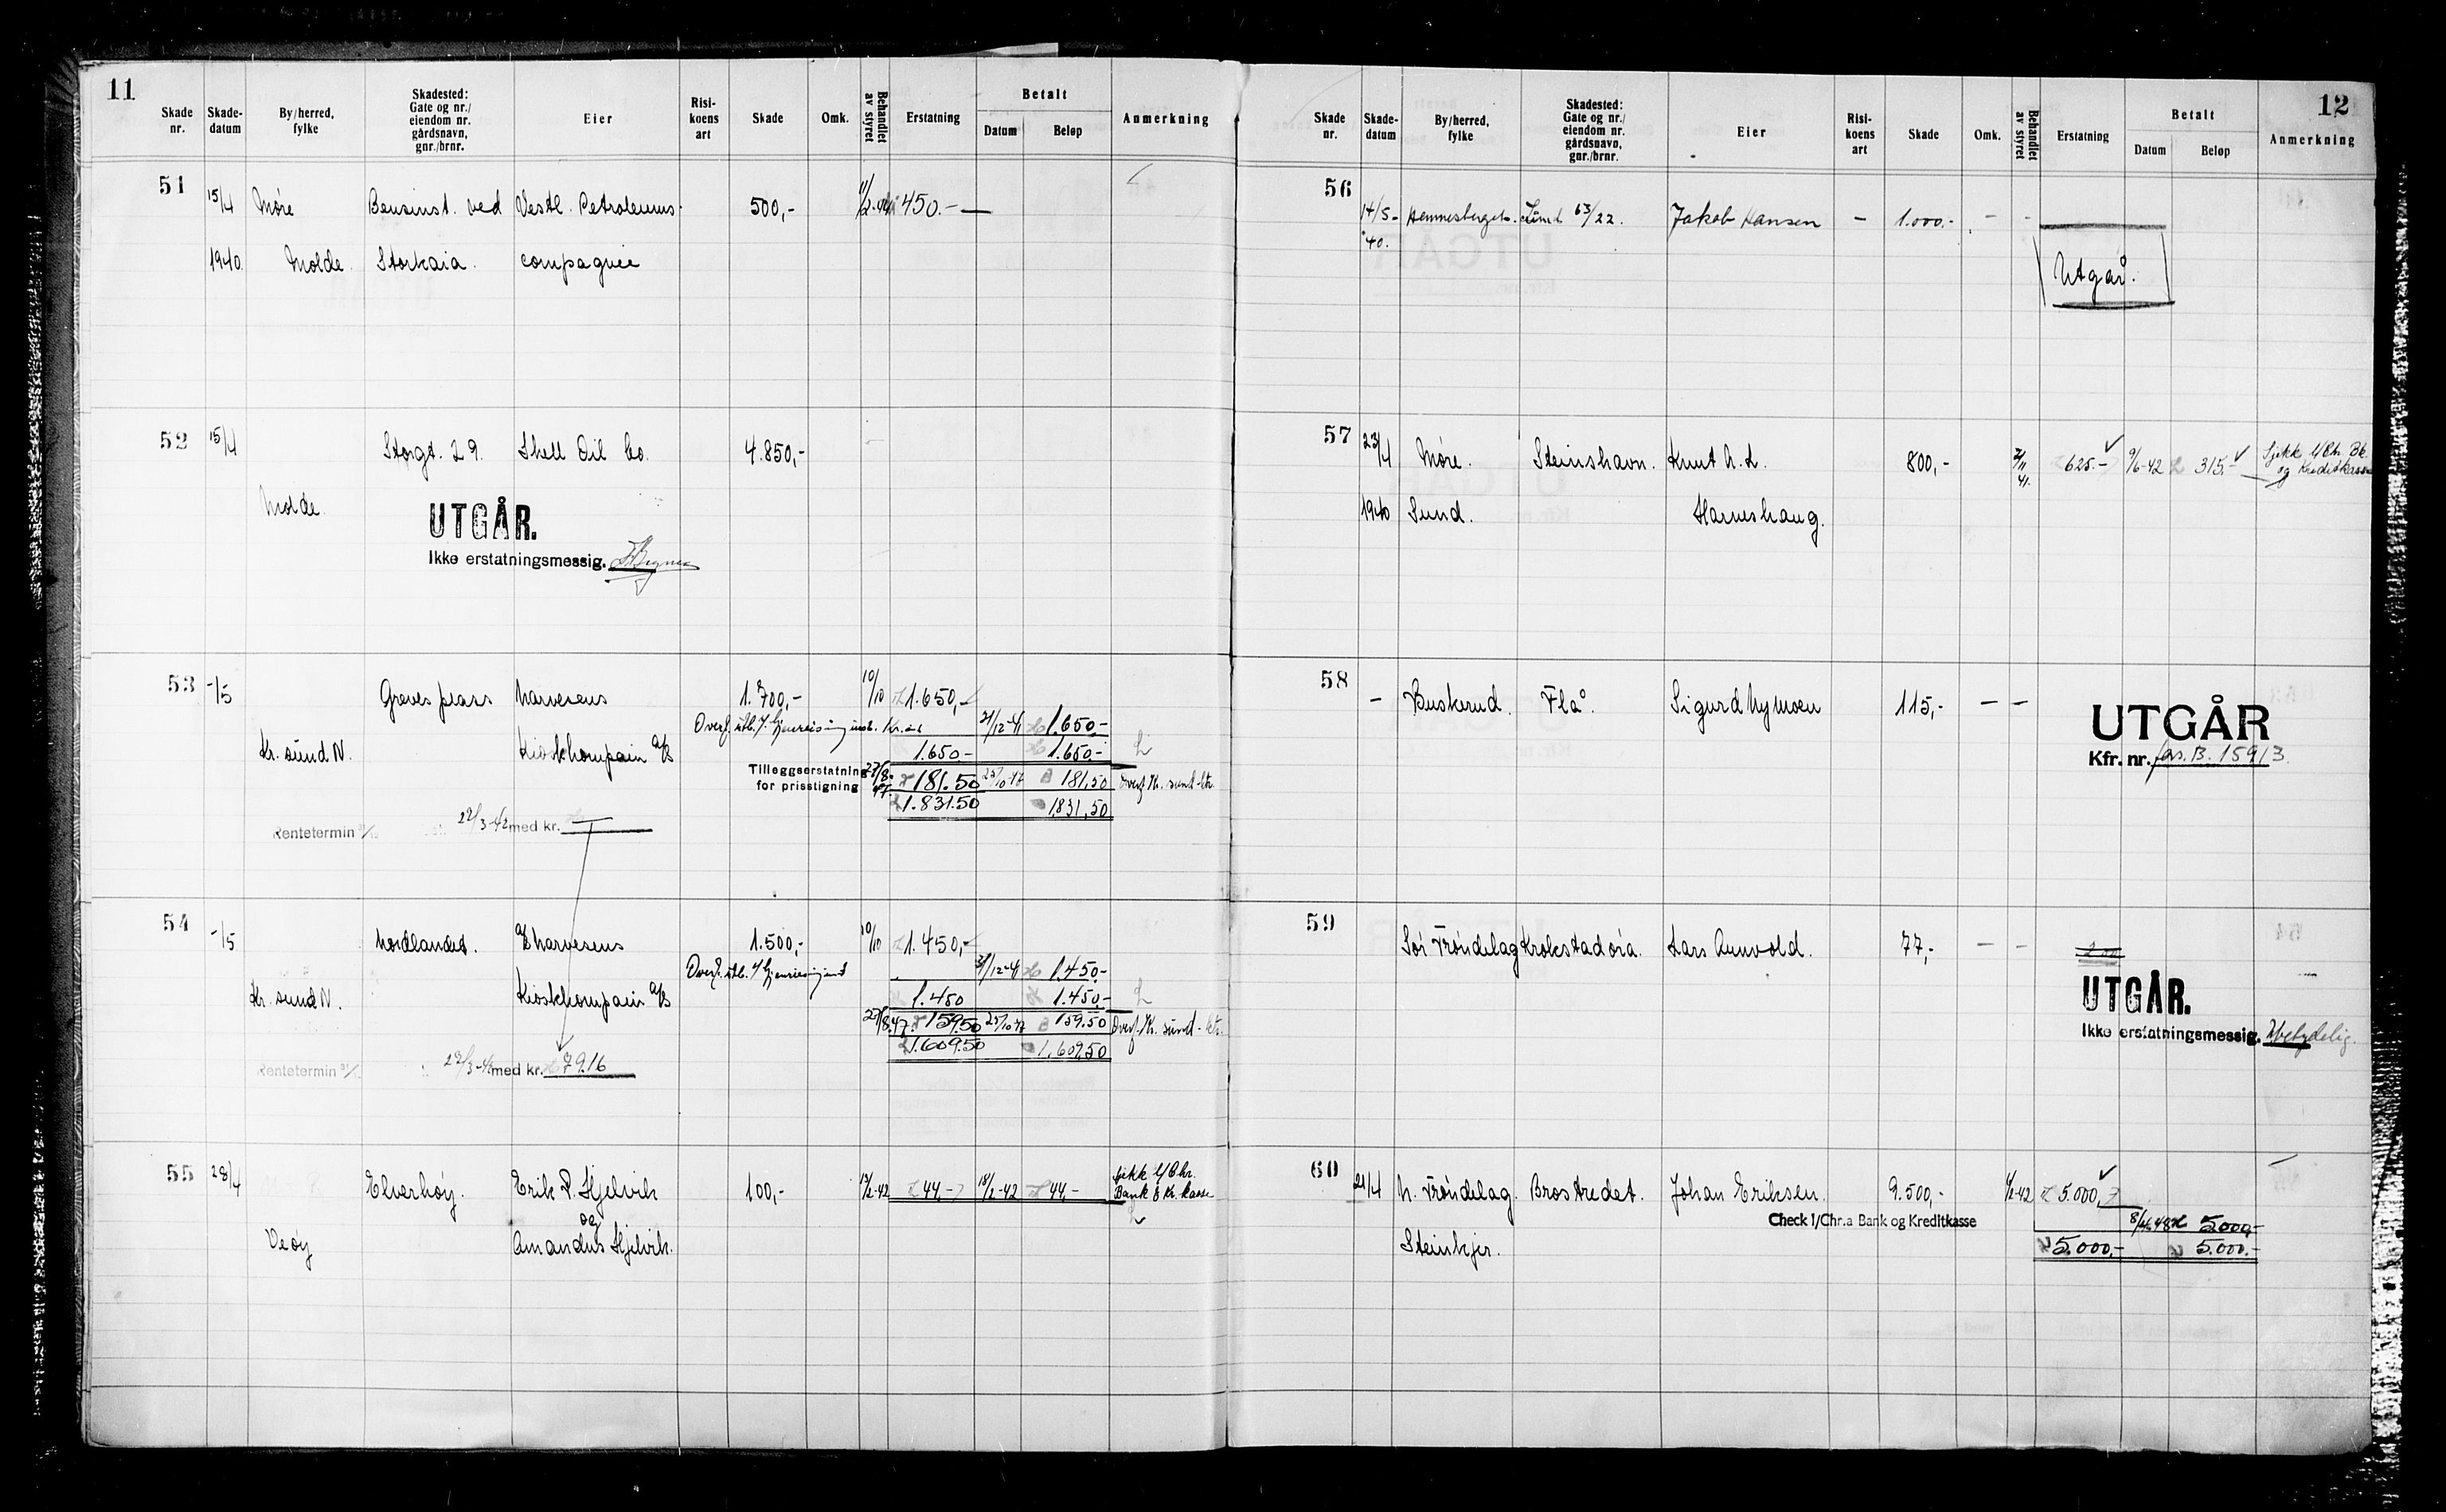 11
Skade nr.
Skade-datum
By/herred, fylke
Skadested: Gate og nr./ eiendom nr. gårdsnavn, gnr./brnr.
Eier
Risi-koens art
Skade
Omk.
Behandlet av styret
Erstatning
Betalt
Datum
Beløp
Anmerkning
51 15/4 Møre Bensinst. ved Vestl. Petroleums- 500,- 450.-
1940 Molde. Storkaia. compagnie
52 15/4 Storgt. 29. Shell Oil Co. 4.850,-
Molde.
UTGÅR.
Ikke erstatningsmessig.
53 -/5 Greves plass Narvesens 1.700,- 10/10 1.650,-
21/12-41 1.650,-
Kr. sund N. Kioskkompani A/S 1.650- 1.650,-
Tilleggserstatning for prisstigning 27/8-47. 181.50 25/10-47 181,50 Overf. Kr. sund-ktr.
1.831.50 1.831,50
Rentetermin 22/3-42 med kr.
54 -/5 Nordlandet. A/S Narvesens 1.500,- 10/10 1.450,-
31/12-41 1.450-
Kr. sund N. Kioskkompani A/S 1.450 1.450,-
27/8.47. 159.50 25/10-47 159.50 Overf. Kr. sund-ktr.
1.609.50 1.609,50
Rentetermin 22/3-42 med kr. 79.16
55 28/4 Elverhøy. Erik P. Hjelvik 100,- 13/2-42 44,- 18/2-42 44,- Sjekk 1/Chr. Bank & Kr. kasse
og
Veøy Amandus Hjelvik.
12
Skade nr.
Skade-datum
By/herred, fylke
Skadested: Gate og nr./ eiendom nr. gårdsnavn, gnr./brnr.
Eier
Risi-koens art
Skade
Omk.
Behandlet av styret
Erstatning
Betalt
Datum
Beløp
Anmerkning
56 14/5- Hemnesberget. Lund 63/22. Jakob Hansen - 1.000.- - -
40.
Utgår.
57 23/4 Møre. Steinshavn. Knut A. L. 800,- 625.- 9/6-42 315.- Sjekk 1/Chr. Bk. og Kreditkasse
1940 Sund. Harneshaug.
58 - Buskerud. Flå. Sigurd Nymoen 115,- - -
UTGÅR
Kfr. nr. fors. B. 15913.
59 Sør Trøndelag Krokstadøra. Lars Aunvold. 77,- - -
UTGÅR.
Ikke erstatningsmessig. Ubetydelig.
60 21/4 N. Trøndelag. Brostredet. Johan Eriksen. 9.500,- 4/2-42 5.000,-
Check 1/Chr.a Bank og Kreditkasse 5.000,-
Steinkjer. 5.000,- 5.000.-